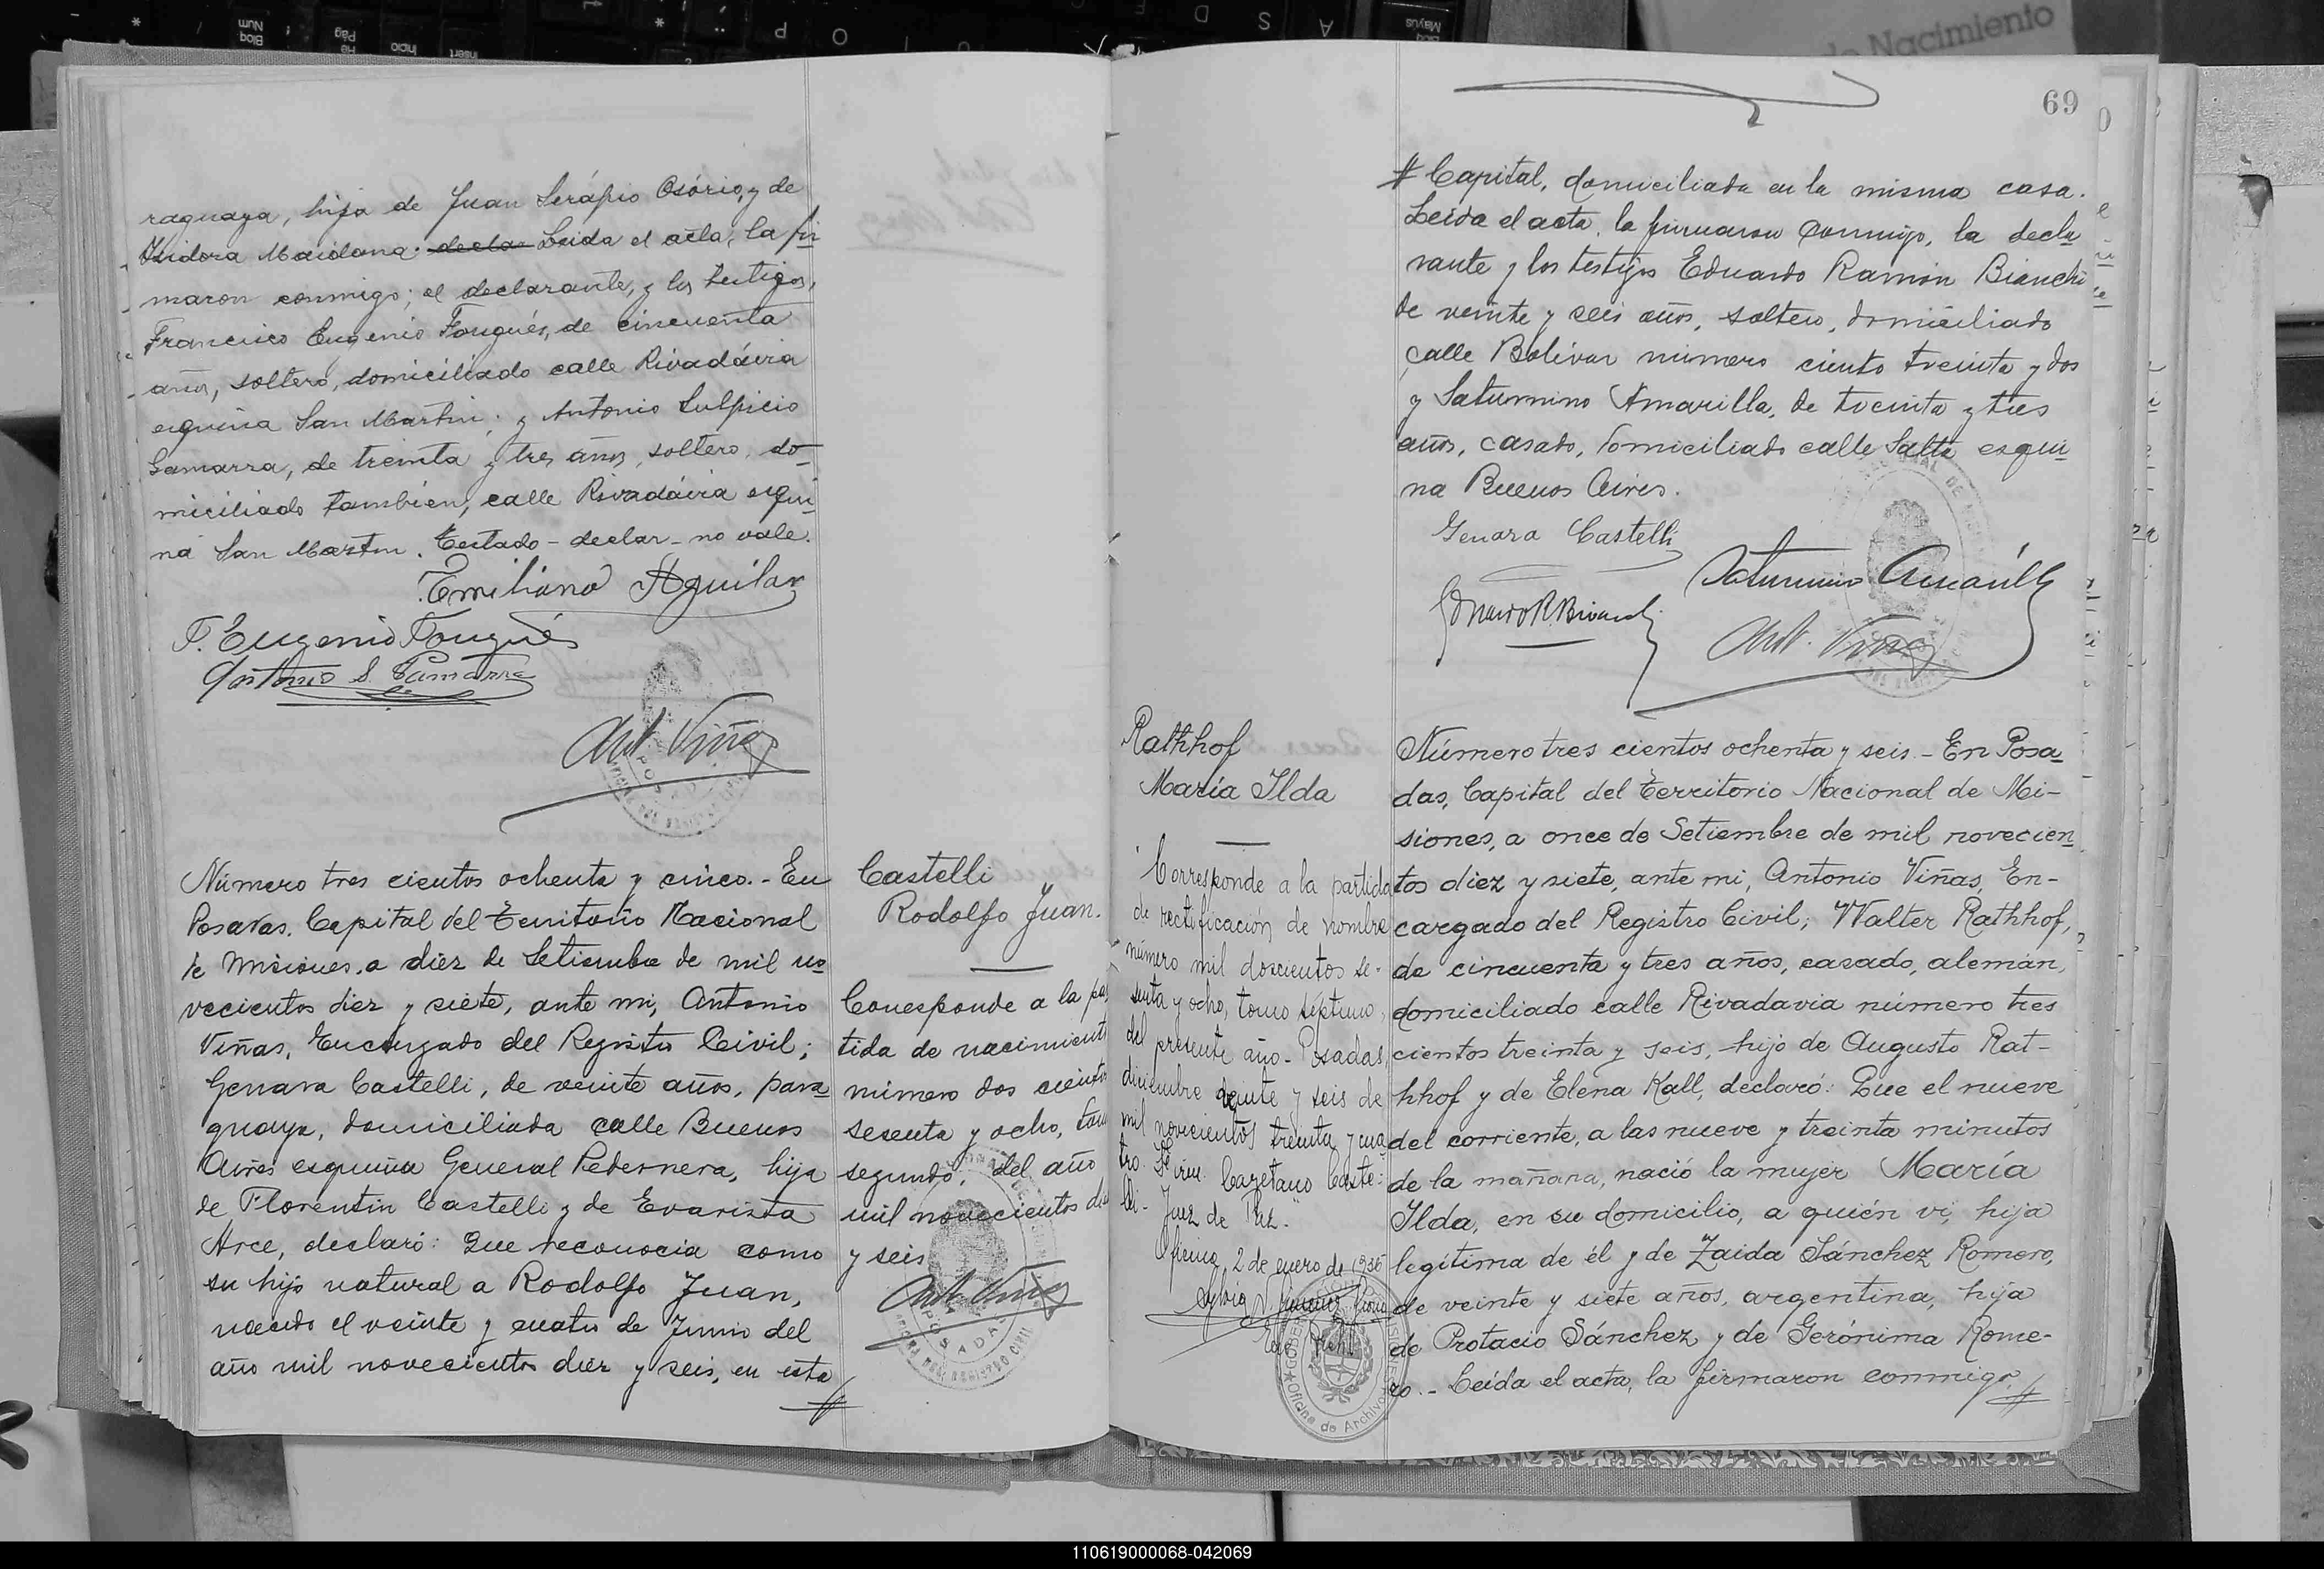 raguaya, hija de Juan Serápio Osório, y de
Isidora Maidana. declar Leida el acta, la fir
maron conmigo; el declarante, y los testigos,
Francisco Eugenio Fougués, de cincuenta
años, soltero, domiciliado calle Rivadávia
esquina San Martin; y Antonio Sulpicio
Gamarra, de treinta y tres años, soltero, do-
miciliado tambien, calle Rivadávia esqui
na San Martin. Testado - declar - no vale.
Emiliano Aguilar
F. Eugenio Fougués
Antonio S. Gamarra
Ant. Viñas
Número tres cientos ochenta y cinco. - En
Posadas, Capital del Territorio Nacional
de Misiones, a diez de Setiembre de mil no
vecientos diez y siete, ante mi, Antonio
Viñas, Encargado del Registro Civil;
Genara Castelli, de veinte años, para
guaya, domiciliada calle Buenos
Aires esquina General Pedernera, hija
de Florentin Castelli y de Evarista
Arce, declaró: Que reconocia como
su hijo natural a Rodolfo Juan,
nacido el veinte y cuatro de Junio del
año mil novecientos diez y seis, en esta
#
Castelli
Rodolfo Juan.
Corresponde a la par
tida de nacimiento
número dos cientos
sesenta y ocho, tomo
segundo, del año
mil novecientos diez
y seis
Ant. Viñas
POSADAS
69
# Capital, domiciliada en la misma casa.
Leida el acta, la firmaron conmigo, la decla
rante y los testigos Eduardo Ramón Bianchi
de veinte y seis años, soltero, domiciliado
calle Bolivar número ciento treinta y dos
y Saturnino Amarilla, de treinta y tres
años, casado, domiciliado calle Salta esqui
na Buenos Aires.
Genara Castelli
Saturnino Amarilla
Eduardo R. Bianchi
Ant. Viñas
Rathhof
María Ilda
Corresponde a la partida
de rectificación de nombre
número mil doscientos se-
senta y ocho, tomo séptimo,
del presente año - Posadas,
diciembre veinte y seis de
mil novecientos treinta y cua
tro. Fdo. Cayetano Caste-
lli - Juez de Paz.-
Oficina, 2 de enero de 1935
Oficina de Archivo
Número tres cientos ochenta y seis. - En Posa
das, Capital del Territorio Nacional de Mi-
siones, a once de Setiembre de mil novecien
tos diez y siete, ante mi, Antonio Viñas, En-
cargado del Registro Civil; Walter Rathhof,
de cincuenta y tres años, casado, alemán,
domiciliado calle Rivadavia número tres
cientos treinta y seis, hijo de Augusto Rat-
hhof y de Elena Kall, declaró: Que el nueve
del corriente, a las nueve y treinta minutos
de la mañana, nació la mujer María
Ilda, en su domicilio, a quién vi, hija
legítima de él y de Zaida Sánchez Romero,
de veinte y siete años, argentina, hija
de Protacio Sánchez y de Gerónima Rome-
ro. - Leída el acta, la firmaron conmigo #
de Nacimiento
110619000068-042069